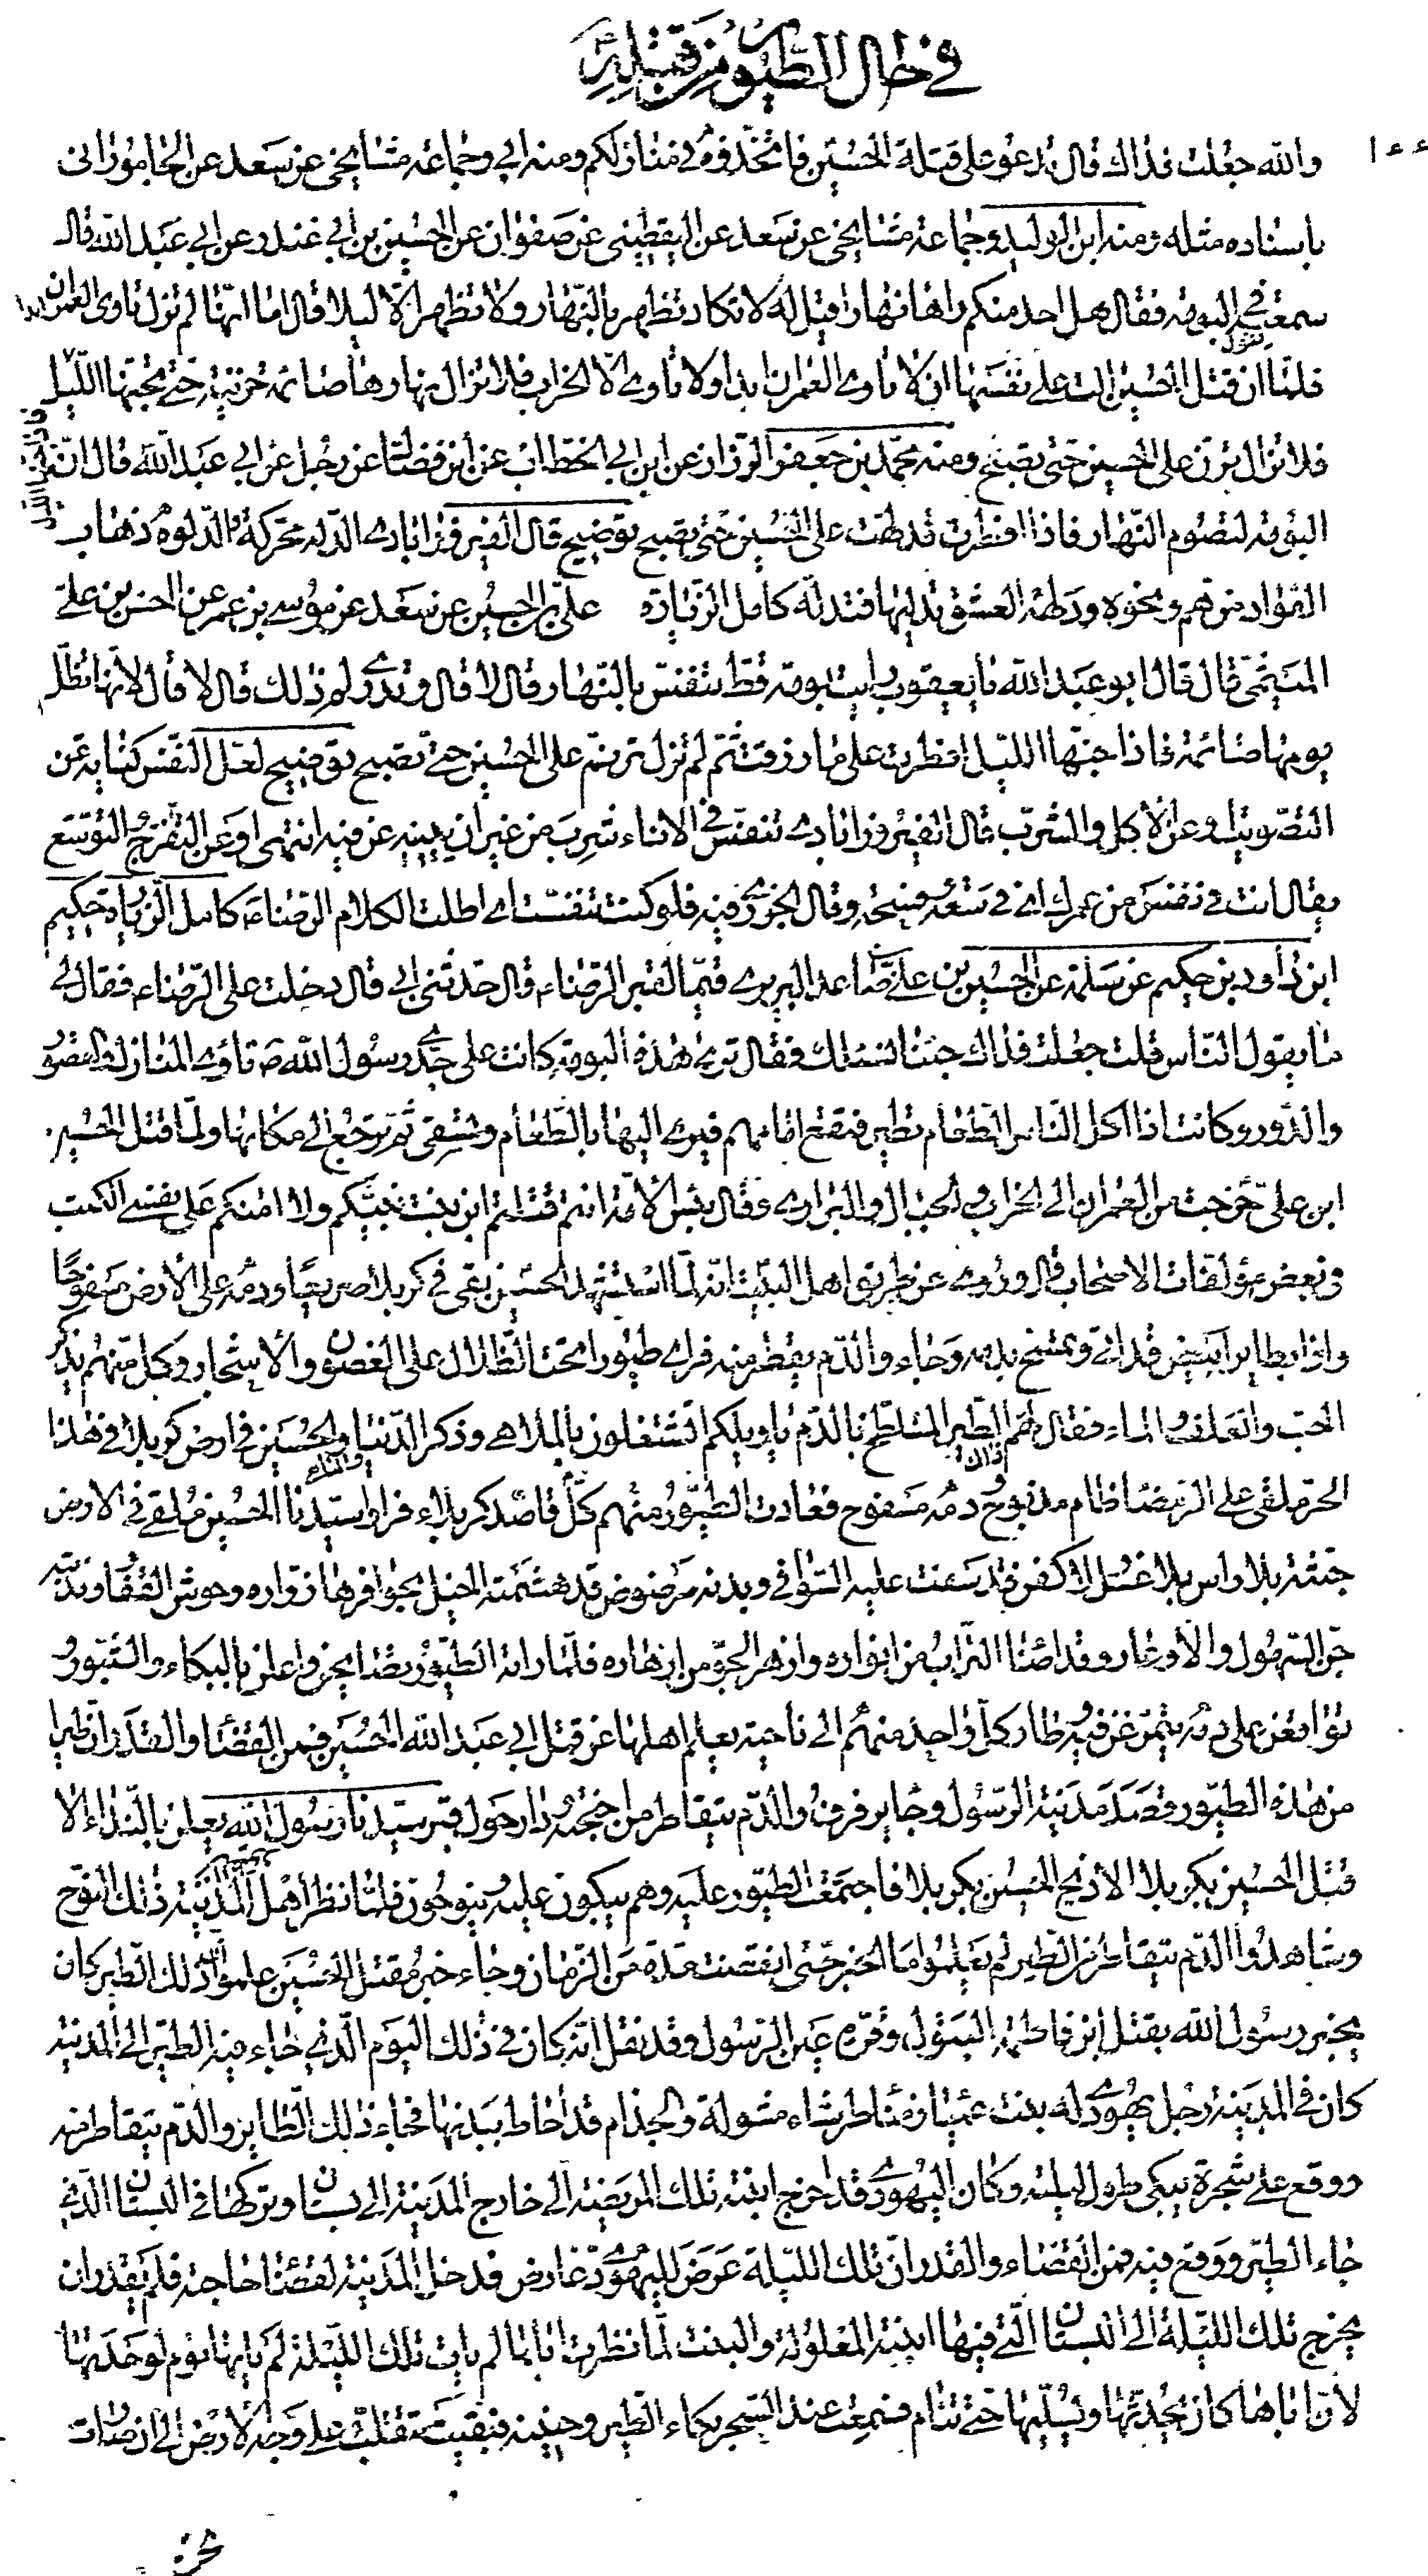 في حال الطيور من قبله
والله جعلت فداك قال تدعو على قتلة الحسين فاتخذوه في منازلكم ومنه ابي وجماعة مشايخي عن سعد عن الجاموراني
باسناده مثله ومنه ابن الوليد وجماعة مشايخي عن سعد عن اليقطيني عن صفوان عن الحسين بن ابي غندر عن ابي عبد الله قال
سمعته يقول في البومة فقال هل احد منكم راها نهارا قيل له لا تكاد تظهر بالنهار ولا تظهر الا ليلا قال اما انها لم تزل تاوى العمران ابدا
فلما ان قتل الحسين الت على نفسها ان لا تاوى العمران ابدا ولا تاوى الا الخراب فلا تزال نهارها صائمة حزينة حتى يجنها الليل
فاذا جنها الليل
فلا تزال ترن على الحسين حتى تصبح ومنه محمد بن جعفر الرزاز عن ابن ابي الخطاب عن ابن فضال عن رجل عن ابي عبد الله قال ان
البومة لتصوم النهار فاذا افطرت تدلهت على الحسين حتى تصبح توضيح قال الفيروزابادي الدله محركة والدلوه ذهاب
الفؤاد من هم ونحوه ودلهه العشق تدليها فتدله كامل الزيارة علي بن الحسين عن سعد عن موسى بن عمر عن الحسن بن علي
الميثمي قال قال ابو عبد الله يا يعقوب رايت بومة قط تنفس بالنهار قال لا قال وتدري لم ذلك قال لا قال لانها تظل
يومها صائمة فاذا جنها الليل افطرت على ما رزقت ثم لم تزل ترنم على الحسين حتى تصبح توضيح لعل التنفس كناية عن
التصويت او عن الاكل والشرب قال الفيروزابادي تنفس في الاناء شرب من غير ان يبينه عن فيه انتهى او عن التفرج والتوسع
يقال انت في نفس من عمرك اي في سعة وفسحة وقال الجزري فيه فلو كنت تنفست اي اطلت الكلام الرضاء كامل الزيارة حكيم
ابن داود بن حكيم عن سلمة عن الحسين بن علي صاعد البربري قيما لقبر الرضاء قال حدثني ابي قال دخلت على الرضاء فقال لي
ما يقول الناس قلت جعلت فداك جئنا لنسئلك فقال ترى هذه البومة كانت على عهد جدي رسول الله ص تاوي المنازل والقصور
والدور وكانت اذا اكل الناس الطعام تطير فتقع امامهم فيرمى اليها بالطعام وتسقى ثم ترجع الى مكانها ولما قتل الحسين
ابن علي خرجت من العمران الى الخراب والجبال والبراري وقال بئس الامة انتم قتلتم ابن بنت نبيكم ولا امنكم على نفسي اكتب
في بعض مؤلفات الاصحاب قال وروى عن طريق اهل البيت انه لما استشهد الحسين بقى في كربلا صريعا ودمه على الارض مسفوحا
واذا بطاير ابيض قد اتى وتمسح بدمه وجاء والدم يقطر منه فراى طيورا تحت الظلال على الغصون والاشجار وكل منهم يذكر
الحب والعلف والماء فقال لهم ذلك الطير المتلطخ بالدم يا ويلكم اتشتغلون بالملاهي وذكر الدنيا والمناهي والحسين في ارض كربلا في هذا
الحر ملقى على الرمضاء ظام مذبوح ودمه مسفوح فعادت الطيور منهم كل قاصد كربلاء فراوا سيدنا الحسين ملقى في الارض
جثته بلا راس بلا غسل ولا كفن قد سفت عليه السوافي وبدنه مرضوض قد هشمته الخيل بحوافرها زواره وحوش القفار وندبته
جن السهول والاوعار وقد اضاء التراب من انواره وازهر الجو من ازهاره فلما راته الطيور تصايحن واعلن بالبكاء والثبور
تواقعن على دمه يتمرغن فيه وطار كل واحد منهم الى ناحية يعلم اهلها عن قتل ابي عبد الله الحسين فمن القضاء والقدر ان طيرا
من هذه الطيور قصد مدينة الرسول وجاء يرفرف والدم يتقاطر من اجنحته ودار حول قبر سيدنا رسول الله يعلن بالنداء الا
قتل الحسين بكربلا الا ذبح الحسين بكربلا فاجتمعت الطيور عليه وهم يبكون عليه وينوحون فلما نظر اهل المدينة ذلك النوح
وشاهدوا الدم يتقاطر من الطير لم يعلموا ما الخبر حتى انقضت مدة من الزمان وجاء خبر مقتل الحسين علموا ان ذلك الطير كان
يخبر رسول الله بقتل ابن فاطمة البتول وقرة عين الرسول وقد نقل انه كان في ذلك اليوم الذي جاء فيه الطير الى المدينة
كان في المدينة رجل يهودي له بنت عمياء زمناء طرشاء مشولة والجذام قد احاط ببدنها فجاء ذلك الطاير والدم يتقاطر منه
ووقع على شجرة يبكي طول ليلته وكان اليهودي قد اخرج ابنته تلك المريضة الى خارج المدينة الى بستان وتركها في البستان الذي
جاء الطير ووقع فيه فمن القضاء والقدر ان تلك الليلة عرض لليهودي عارض فدخل المدينة لقضاء حاجته فلم يقدر ان
يخرج تلك الليلة الى البستان التي فيها ابنته المعلولة والبنت لما نظرت اباها لم يات تلك الليلة لم ياتها نوم لوحدتها
لان اباها كان يحدثها ويسليها حتى تنام فسمعت عند السحر بكاء الطير وحنينه فبقيت تتقلب على وجه الارض الى ان صارت